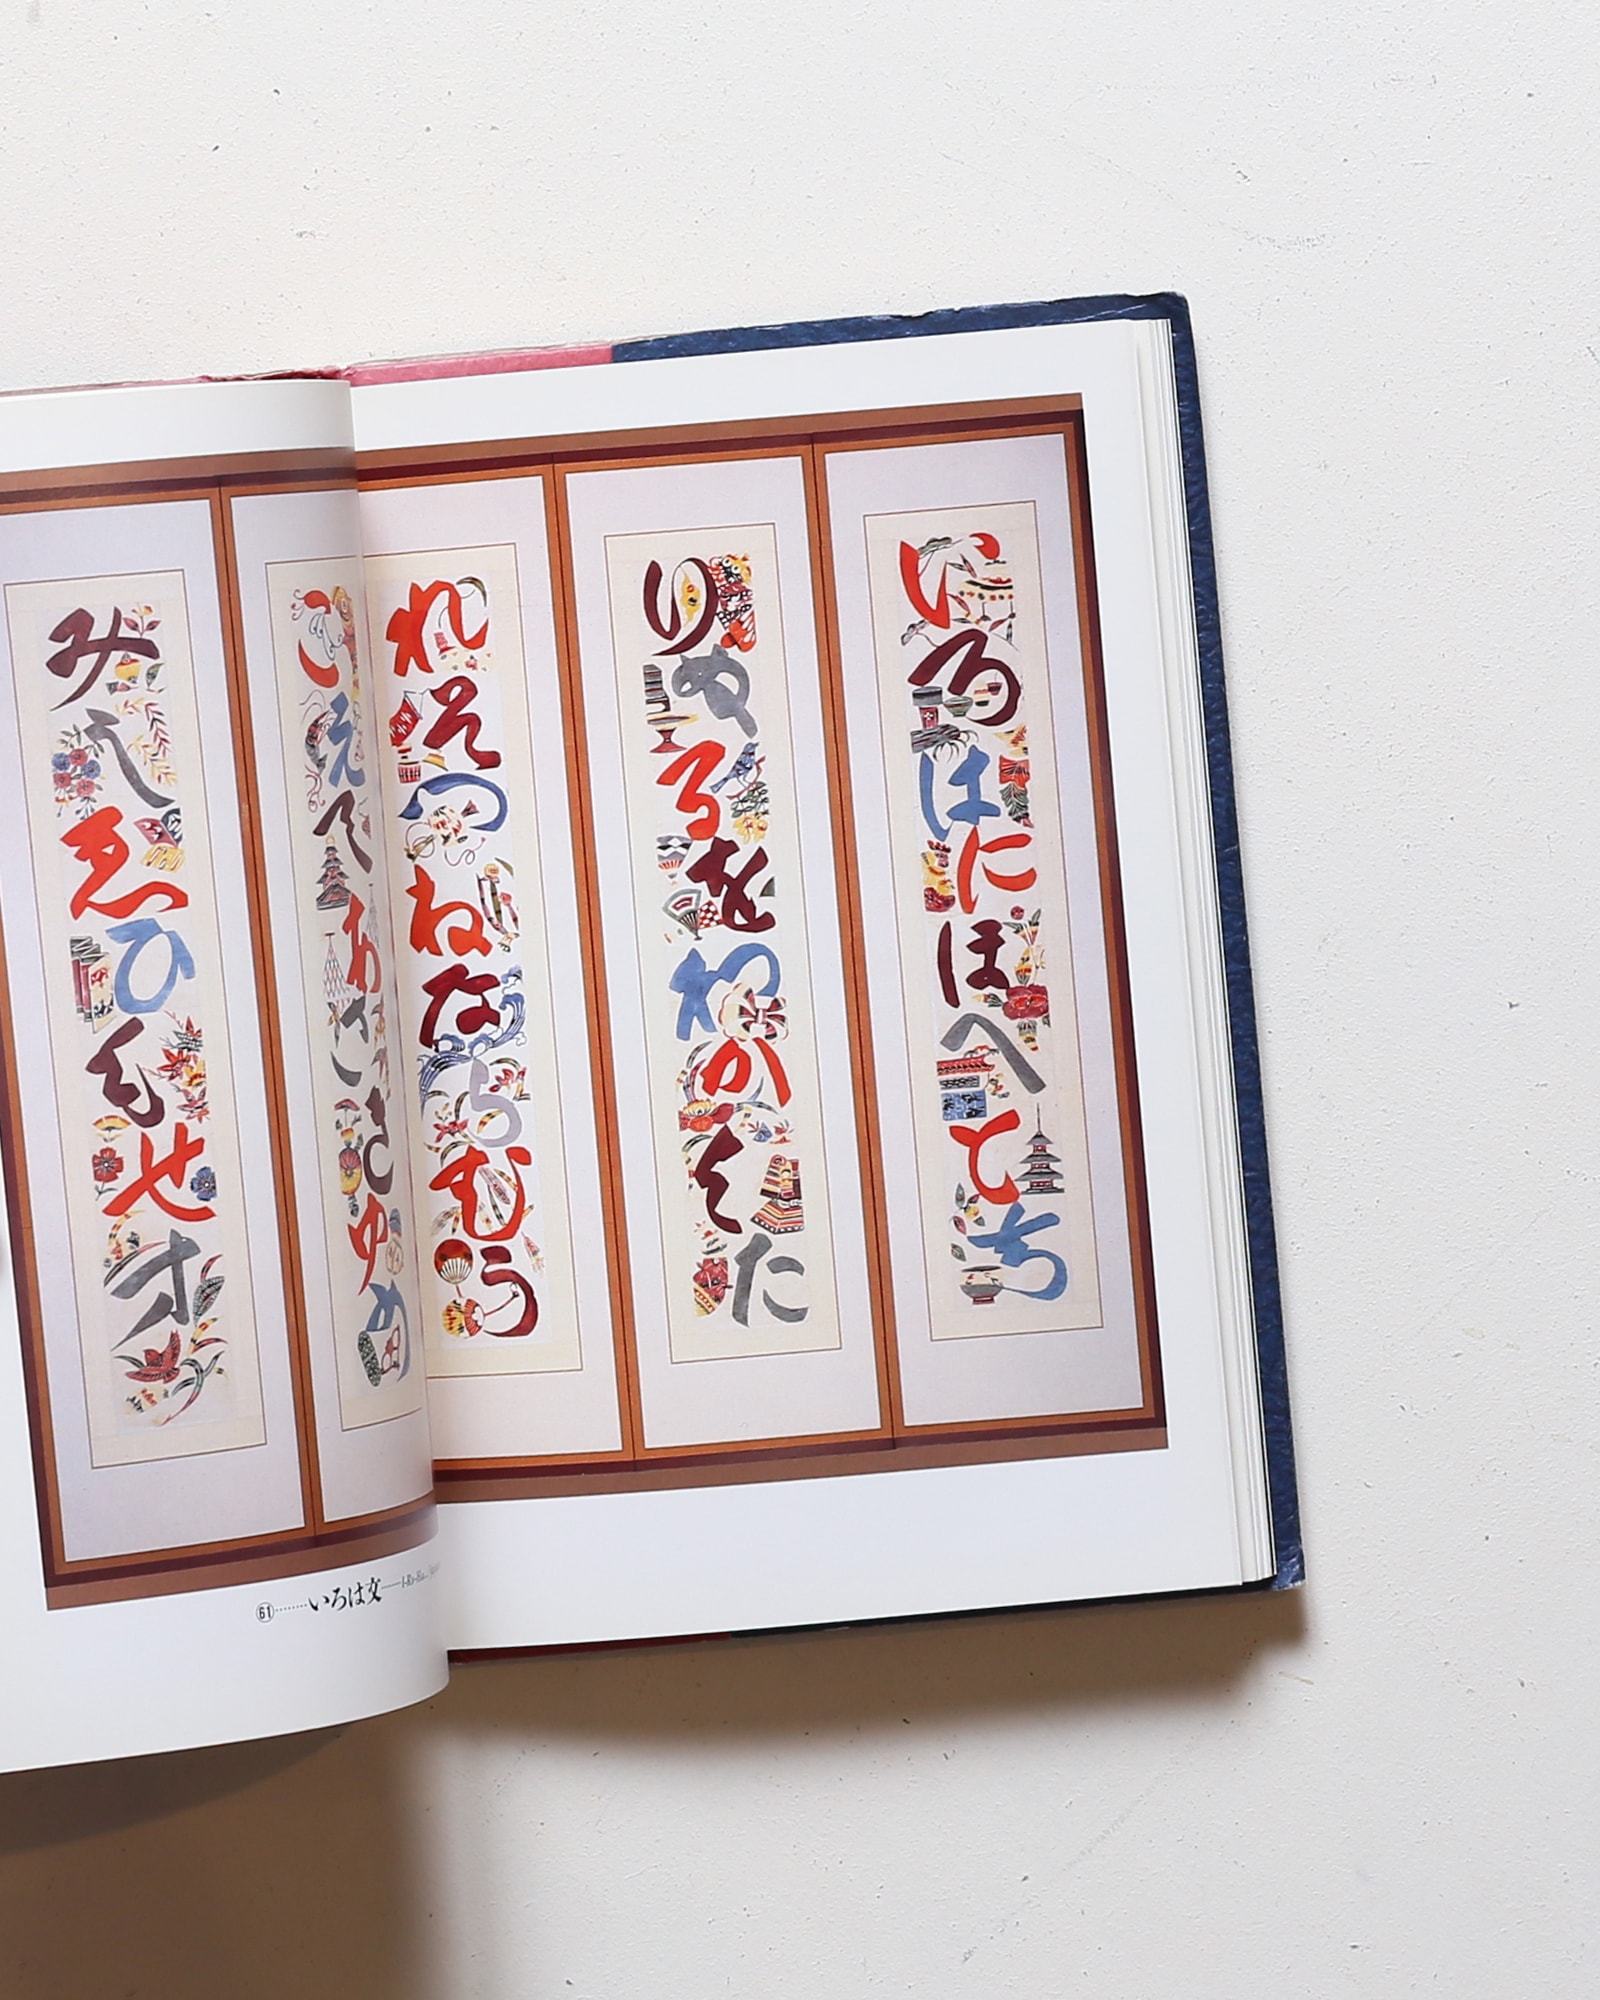 いろはにほへとち
りぬるをわかよた
れそつねならむう
こえてあさきゆめ
みしゑひもせす
61········いろは文——I-Ro-Ha...